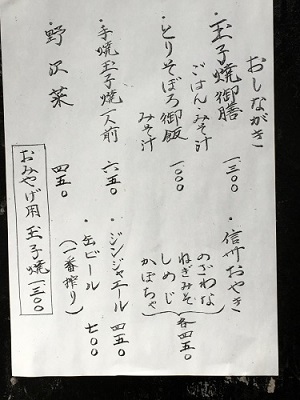 おしながき
・玉子焼御膳 一三〇〇
ごはん・みそ汁
・とりそぼろ御飯 一〇〇〇
みそ汁
・手焼玉子焼一人前 六五〇
・野沢菜 四五〇
・信州おやき
のざわな
ねぎみそ
しめじ
かぼちゃ
各四五〇
・ジンジャエール 四五〇
・缶ビール 七〇〇
(一番搾り)
おみやげ用 玉子焼 一三〇〇